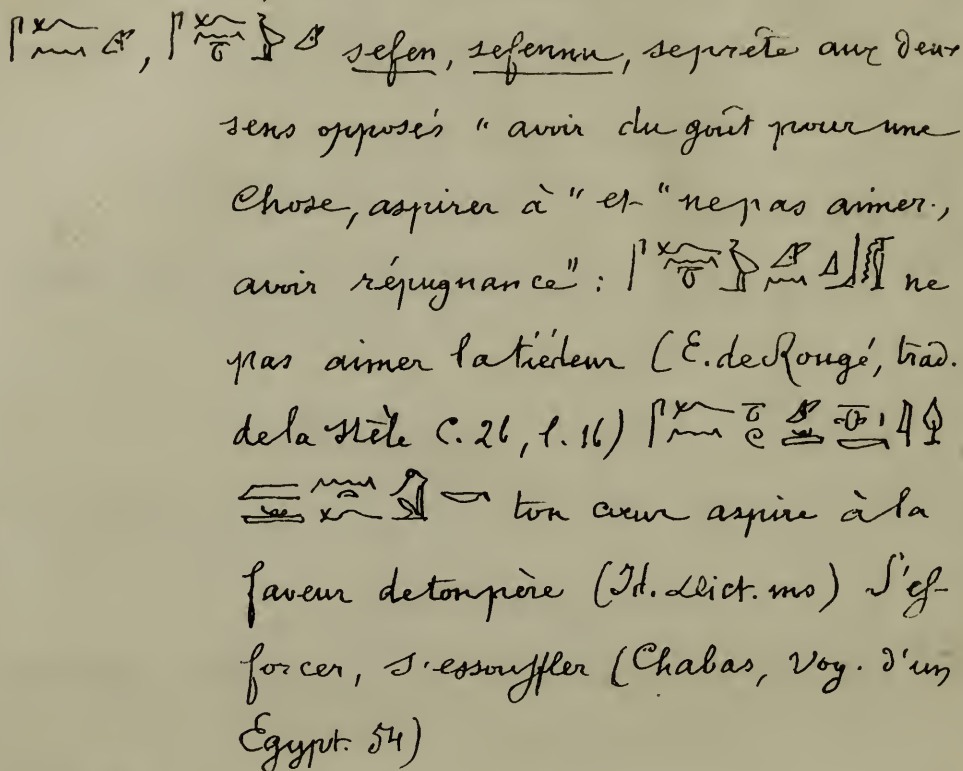 sefen, sefennu, se prête aux deux
sens opposés "avoir du goût pour une
chose, aspirer à" et "ne pas aimer,
avoir répugnance" : ne
pas aimer la tiédeur (E. de Rougé, trad.
de la stèle C. 26, l. 16)
ton cœur aspire à la
faveur de ton père (Id. Dict. ms) S'ef-
forcer, s'essouffler (Chabas, Voy. d'un
Egypt. 54)